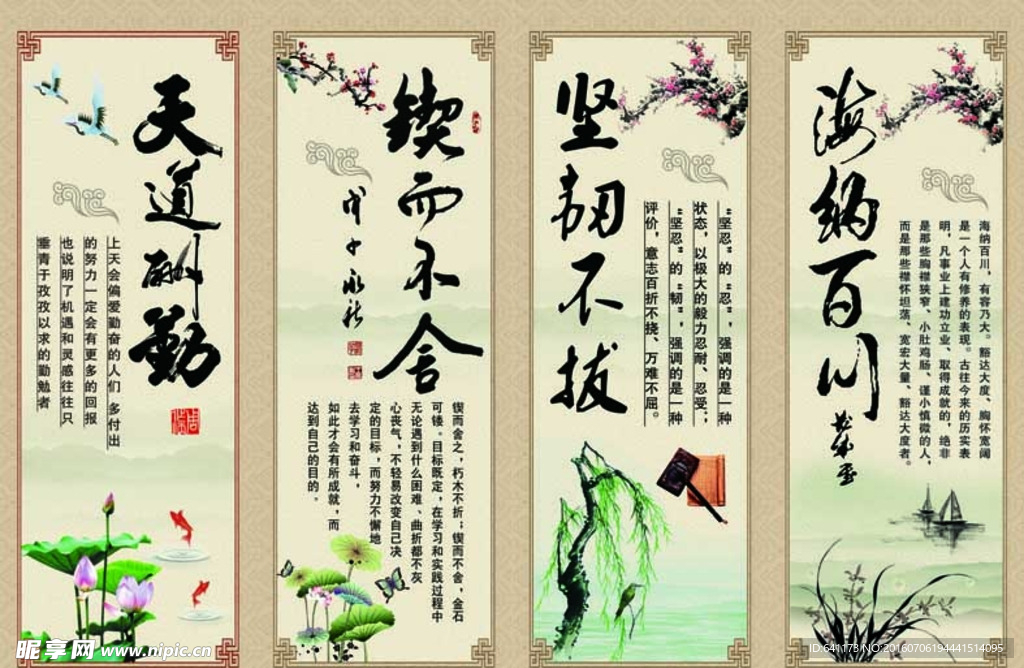 天道酬勤
上天会偏爱勤奋的人们 多付出
的努力一定会有更多的回报
也说明了机遇和灵感往往只
垂青于孜孜以求的勤勉者
锲而不舍
锲而舍之，朽木不折；锲而不舍，金石
可镂。目标既定，在学习和实践过程中
无论遇到什么困难、曲折都不灰
心丧气，不轻易改变自己决
定的目标，而努力不懈地
去学习和奋斗，
如此才会有所成就，而
达到自己的目的。
坚韧不拔
“坚忍”的“忍”，强调的是一种
状态，以极大的毅力忍耐、忍受；
“坚忍”的“韧”，强调的是一种
评价，意志百折不挠、万难不屈。
海纳百川
海纳百川，有容乃大。豁达大度、胸怀宽阔
是一个人有修养的表现。古往今来的历实表
明，凡事业上建功立业、取得成就的，绝非
是那些胸襟狭窄、小肚鸡肠、谨小慎微的人，
而是那些襟怀坦荡、宽宏大量、豁达大度者。
昵享网 www.nipic.cn
ID:641173 NO:20160706194441514095